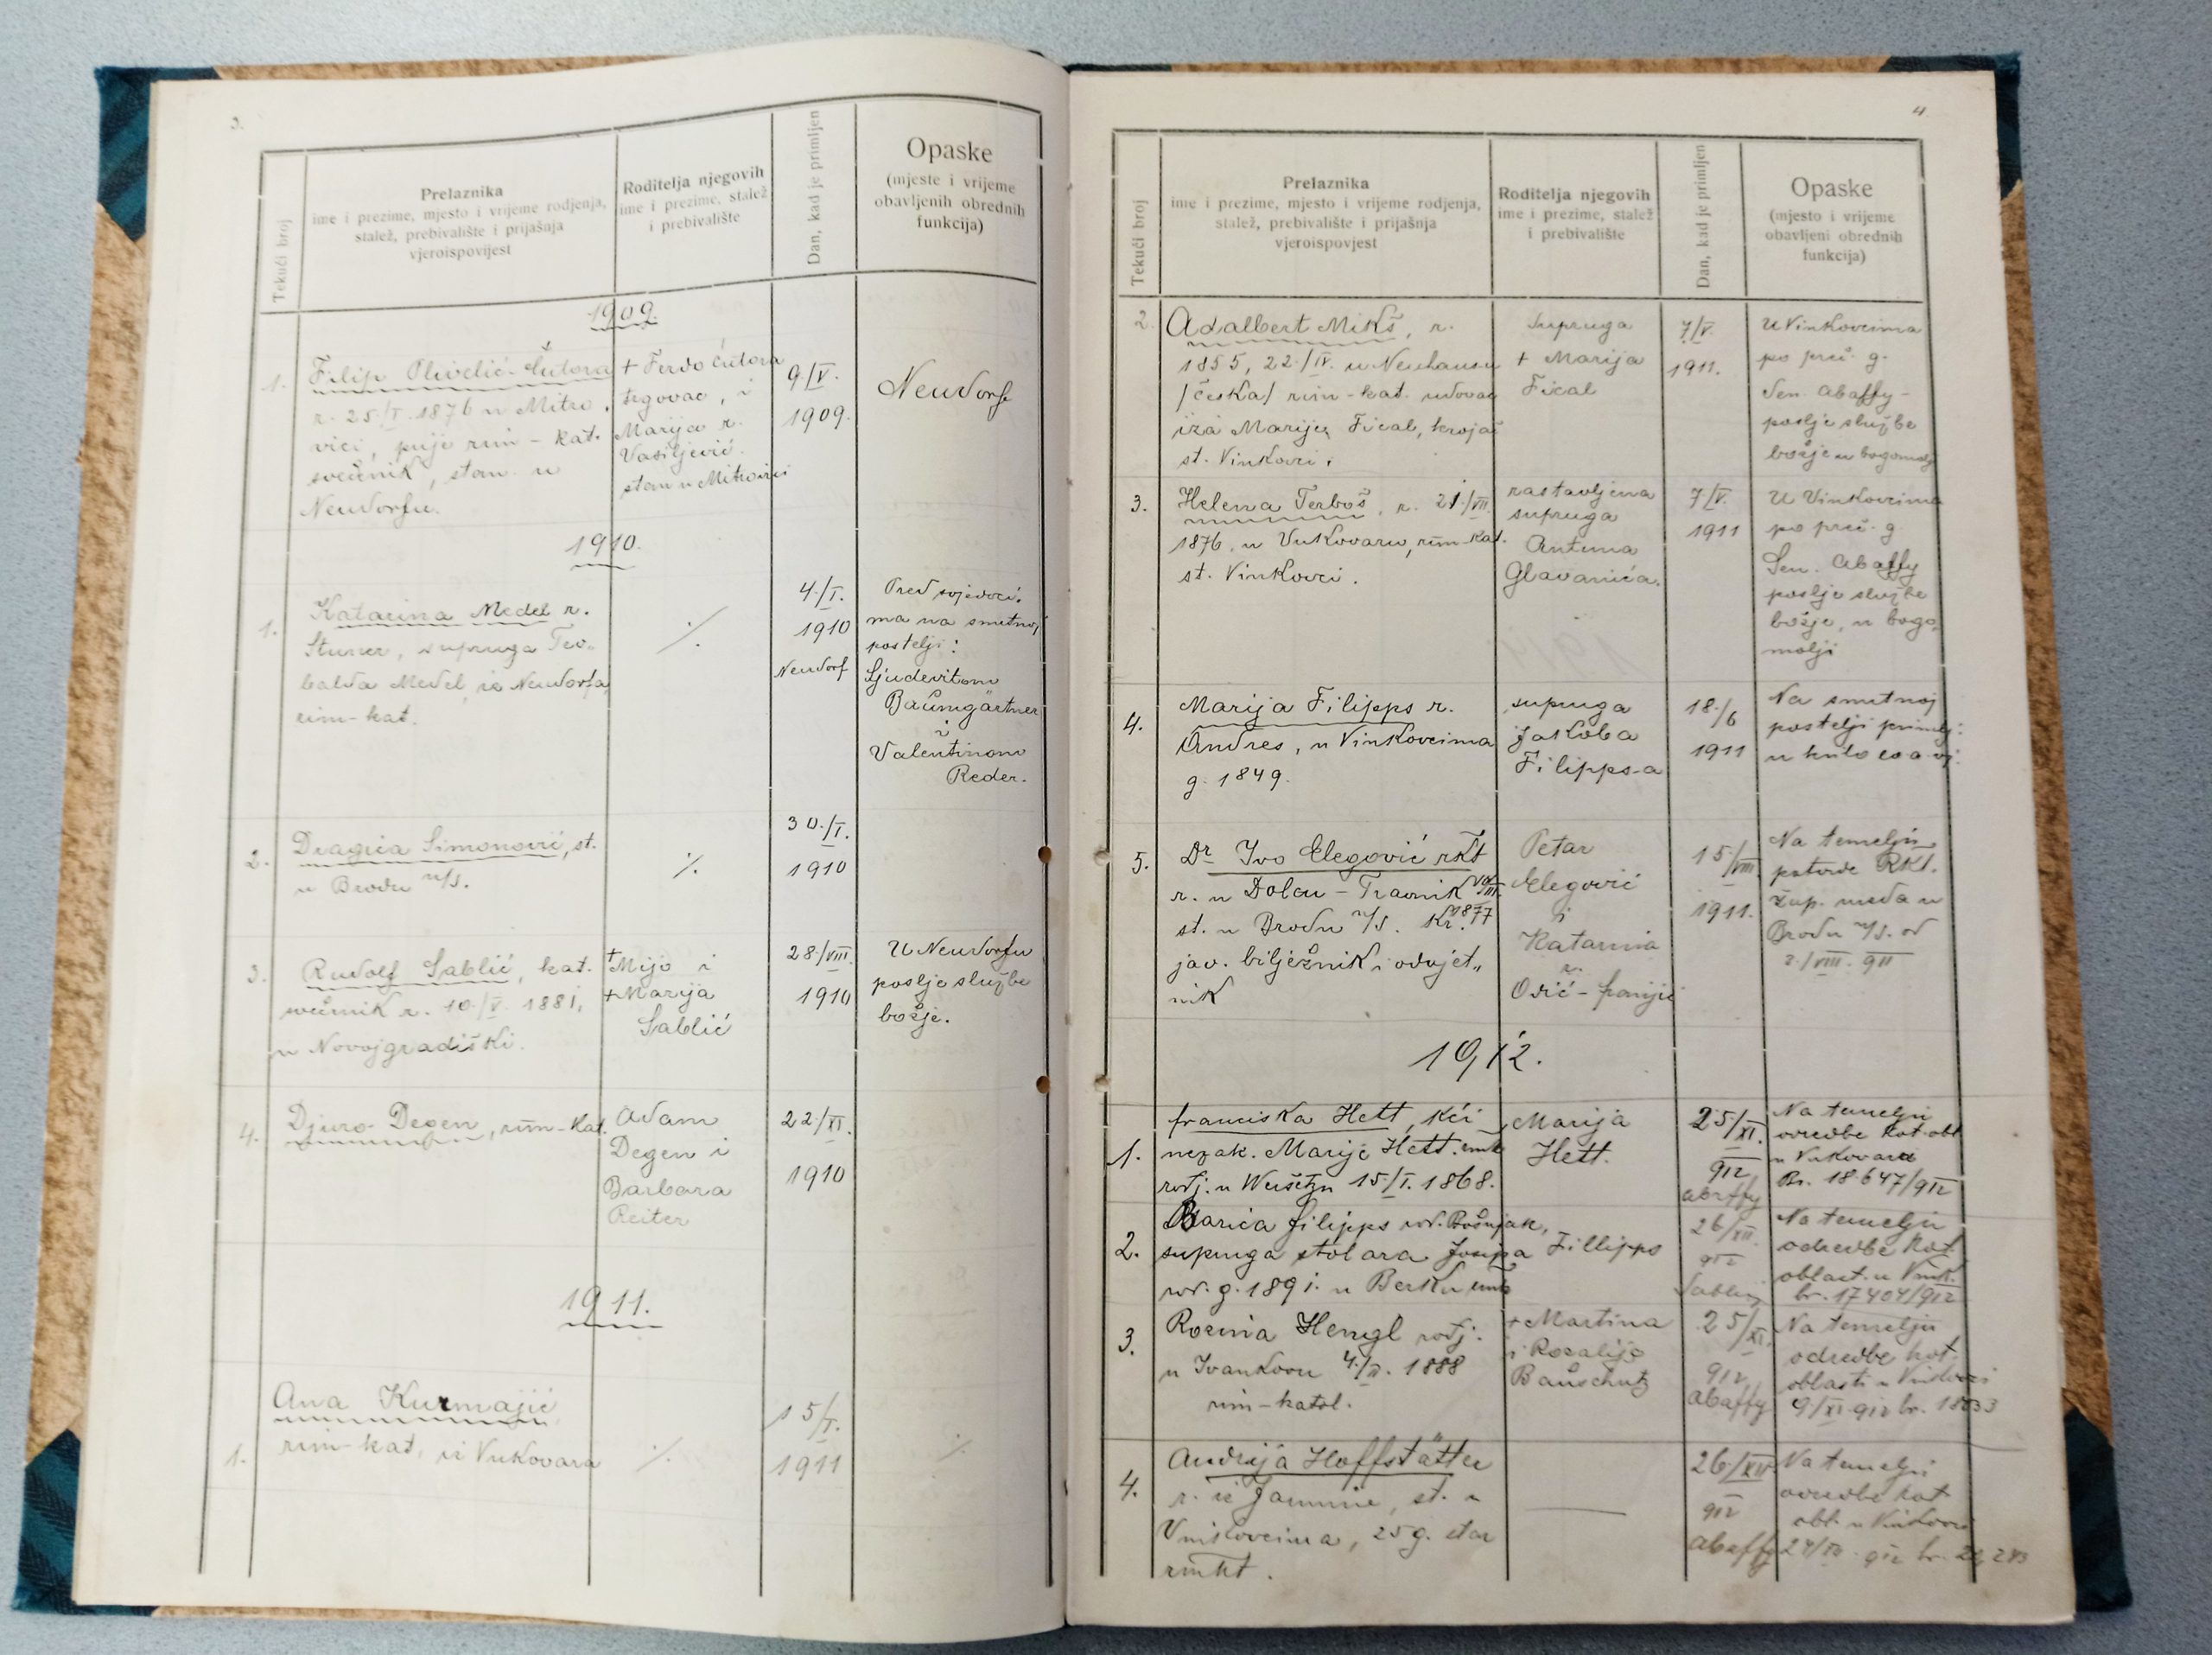 3.
Tekući broj
Prelaznika
ime i prezime, mjesto i vrijeme rodjenja,
stalež, prebivalište i prijašaja
vjeroispovijest
Roditelja njegovih
ime i prezime, stalež
i prebivalište
Dan, kad je primljen
Opaske
(mjeste i vrijeme
obavljenih obrednih
funkcija)
1909.
1.
Filip Plivelić-Čutora
r. 25./I. 1876 u Mitro,
vici, prije rim-kat.
svećenik, stan. u
Neudorfu.
+ Ferdo Čutora
trgovac, i
Marija r.
Vasiljević
stan u Mitrovici
9/V.
1909.
Neudorf
1910.
1.
Katarina Medel r.
Stumer, supruga Teo„
balda Medel, iz Neudorfa,
rim-kat.
·/.
4./I.
1910
Neudorf
Pred svjedoci,
ma na smrtnoj
postelji:
Ljudevitom
Baumgärtner
i
Valentinom
Reder.
2.
Dragica Simonović, st.
u Brodu n/S.
·/.
30./I.
1910
3.
Rudolf Sablić, kat.
svećenik r. 10./V. 1881,
u Novojgradiški.
+Mijo i
+Marija
Sablić
28./VIII.
1910
U Neudorfu
poslje službe
božje.
4.
Djuro Degen, rim-kat.
Adam
Degen i
Barbara
Reiter
22./XI.
1910
1911.
1.
Ana Kurmajić
rim-kat, iz Vukovara
·/.
15/I.
1911
·/.
4
Tekući broj
Prelaznika
ime i prezime, mjesto i vrijeme rodjenja,
stalež, prebivalište i prijašnja
vjeroispovjest
Roditelja njegovih
ime i prezime, stalež
i prebivalište
Dan, kad je primljen
Opaske
(mjesto i vrijeme
obavljeni obrednih
funkcija)
2.
Adalbert Mikš, r.
1855, 22./IV. u Neuhausu
/česka/ rim-kat. udovac
iza Marije Fical, krojač
st. Vinkovci.
supruga
+ Marija
Fical
7/V.
1911.
U Vinkovcima
po preč. g.
Sen. Abaffy-
poslje službe
božje u bogomolj
3.
Helena Terboš, r. 21./VII.
1876. u Vukovaru, rim-kat.
st. Vinkovci.
rastavljena
supruga
Antuna
Glavanića.
7/V.
1911
U Vinkovcima
po preč. g.
Sen. Abaffy
poslje službe
božje, u bogo„
molji
4.
Marija Filipps r.
Andres, u Vinkovcima
g. 1849.
supruga
Jakoba
Filipps-a
18./6
1911
Na smrtnoj
postelji
5.
Dr Ivo Elegović rkt
r. u Dolcu-Travnik
st. u Brodu n/S. 1877
jav. bilježnik i odvjet„
nik
Petar
Elegović
i
Katarina
r.
15/VIII
1911.
Na temelju
potvrde Rkt.
žup. ureda u
Brodu n/S. od
2./VIII. 911
1912.
1.
Franciska Hett, kći
nezak. Marije Hett. rmk
rodj. u Weršetzu 15./I. 1868.
Marija
Hett.
25/XI.
912
Abaffy
Na temelju
odredbe kot. obl.
u Vukovaru
Br. 18.647/912
2.
Barica Filipps rod. Bošnjak,
supruga stolara Josipa
rod. g. 1891. u Berku rmk
Fillipps
26/XII.
912
Na temelju
odredbe kot.
oblast. u Vink.
br. 17404/912
3.
Rozina Hengl rodj.
u Ivankovu 4./II. 1888
rim-katol.
+ Martina
i Rozalije
Bauschutz
25/XI.
912
Abaffy
Na temelju
odredbe kot.
oblasti u Vinkovci
9/XI 912 br.
4.
Andrija Hoffstätter
r. iz Jarmine, st. u
Vinkovcima, 25 g. star
rmkt.
26/XII
912
Abaffy
Na temelju
odredbe kot
obl. u Vinkovci